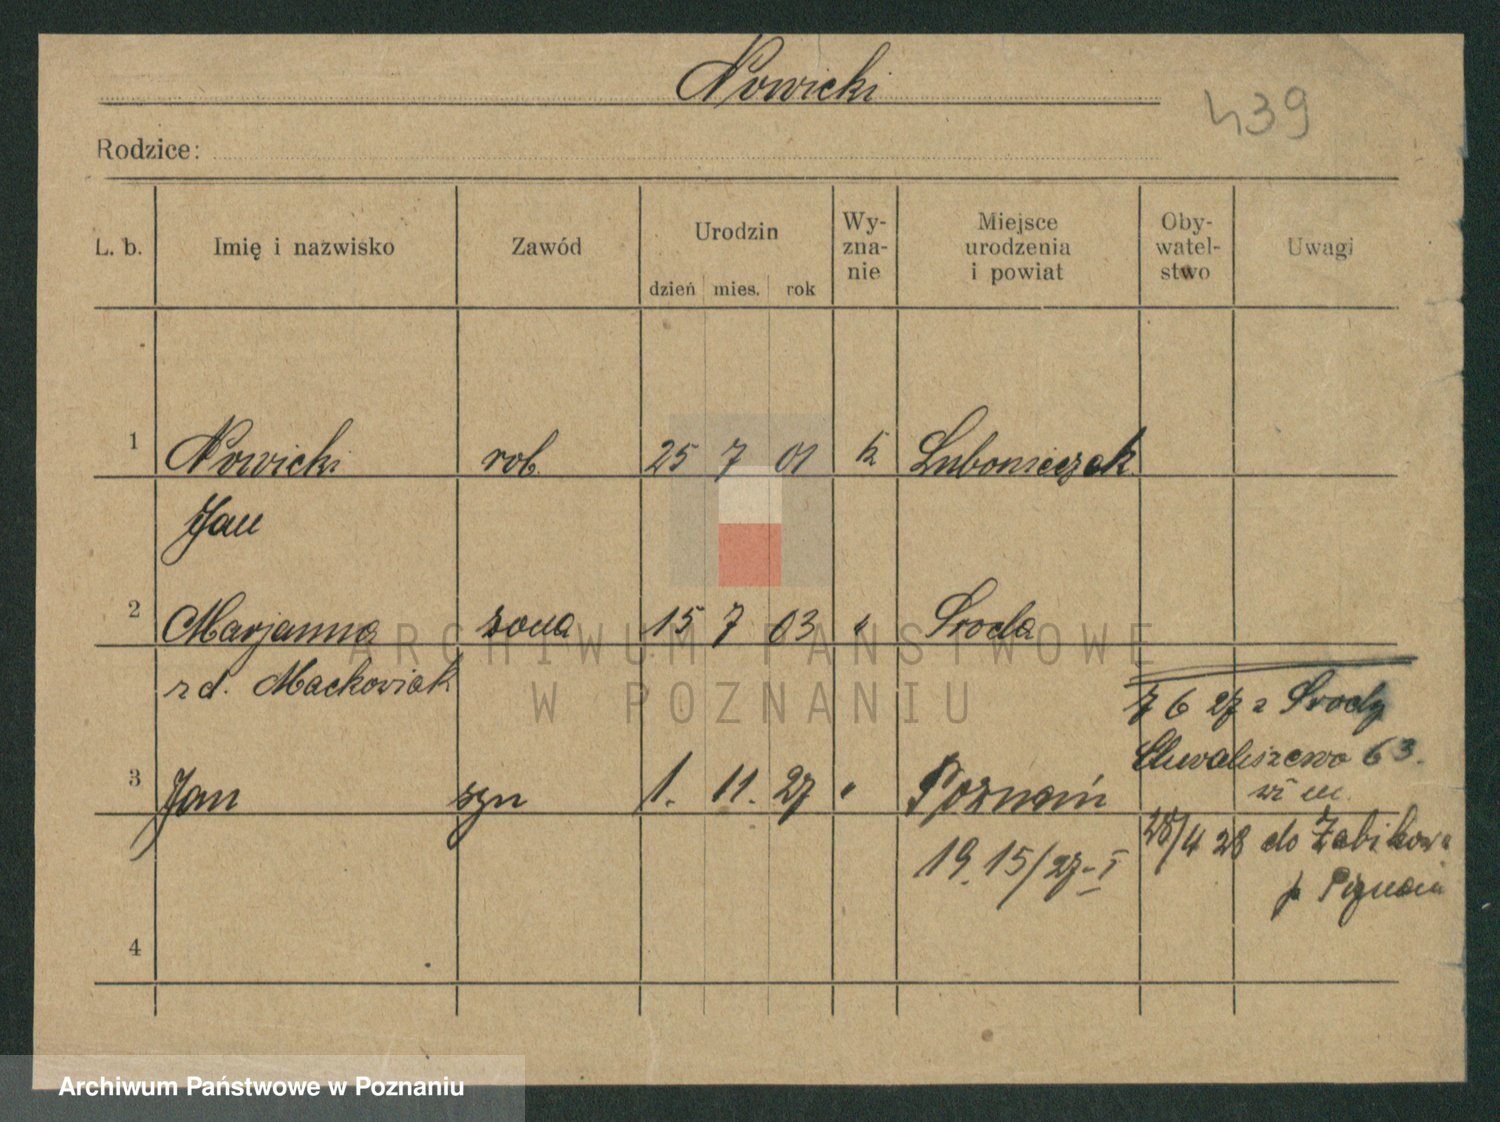 Nowicki
439
Rodzice:
L. b. Imię i nazwisko Zawód Urodzin Wy-zna-nie Miejsce urodzenia i powiat Oby-watel-stwo Uwagi
dzień mies. rok
1 Nowicki rob. 25 7 01 k Lubonieczek
Jan
2 Marjanna żona 15 7 03 " Środa
zd. Mackowiak
7 6 27 z Środy
Chwaliszewo 63.
3 Jan syn 1. 11. 27 " Poznań
19.15/27-I
28/4 28 do Żabikowa
p Poznań
4
ARCHIWUM PAŃSTWOWE
W POZNANIU
Archiwum Państwowe w Poznaniu